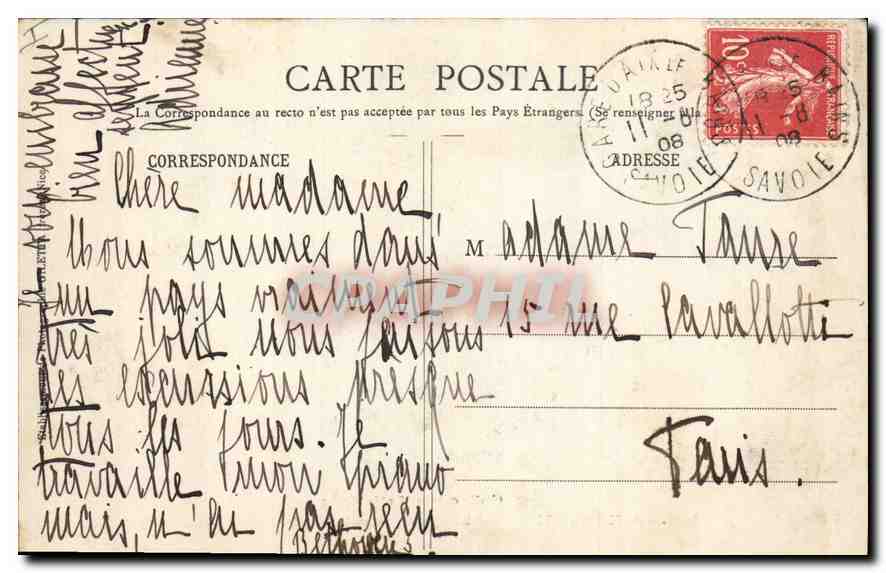 CARTE POSTALE
La Correspondance au recto n'est pas acceptée par tous les Pays Étrangers. (Se renseigner à la
CORRESPONDANCE
ADRESSE
Chère madame
Nous sommes dans
un pays vraiment
très joli nous faisons
des excursions presque
tous les jours. Je
travaille mon piano
mais, n'ai pas reçu
Bethoven
Je vous embrasse
bien affectueu
sement
Madame Tanre
15 rue Cavallotti
Paris.
GARE D'AIX LES BAINS
18 25
11 - 8
08
SAVOIE
BAINS
11 - 8
08
SAVOIE
10c
REPUBLIQUE FRANÇAISE
POSTES
CPAPHIL